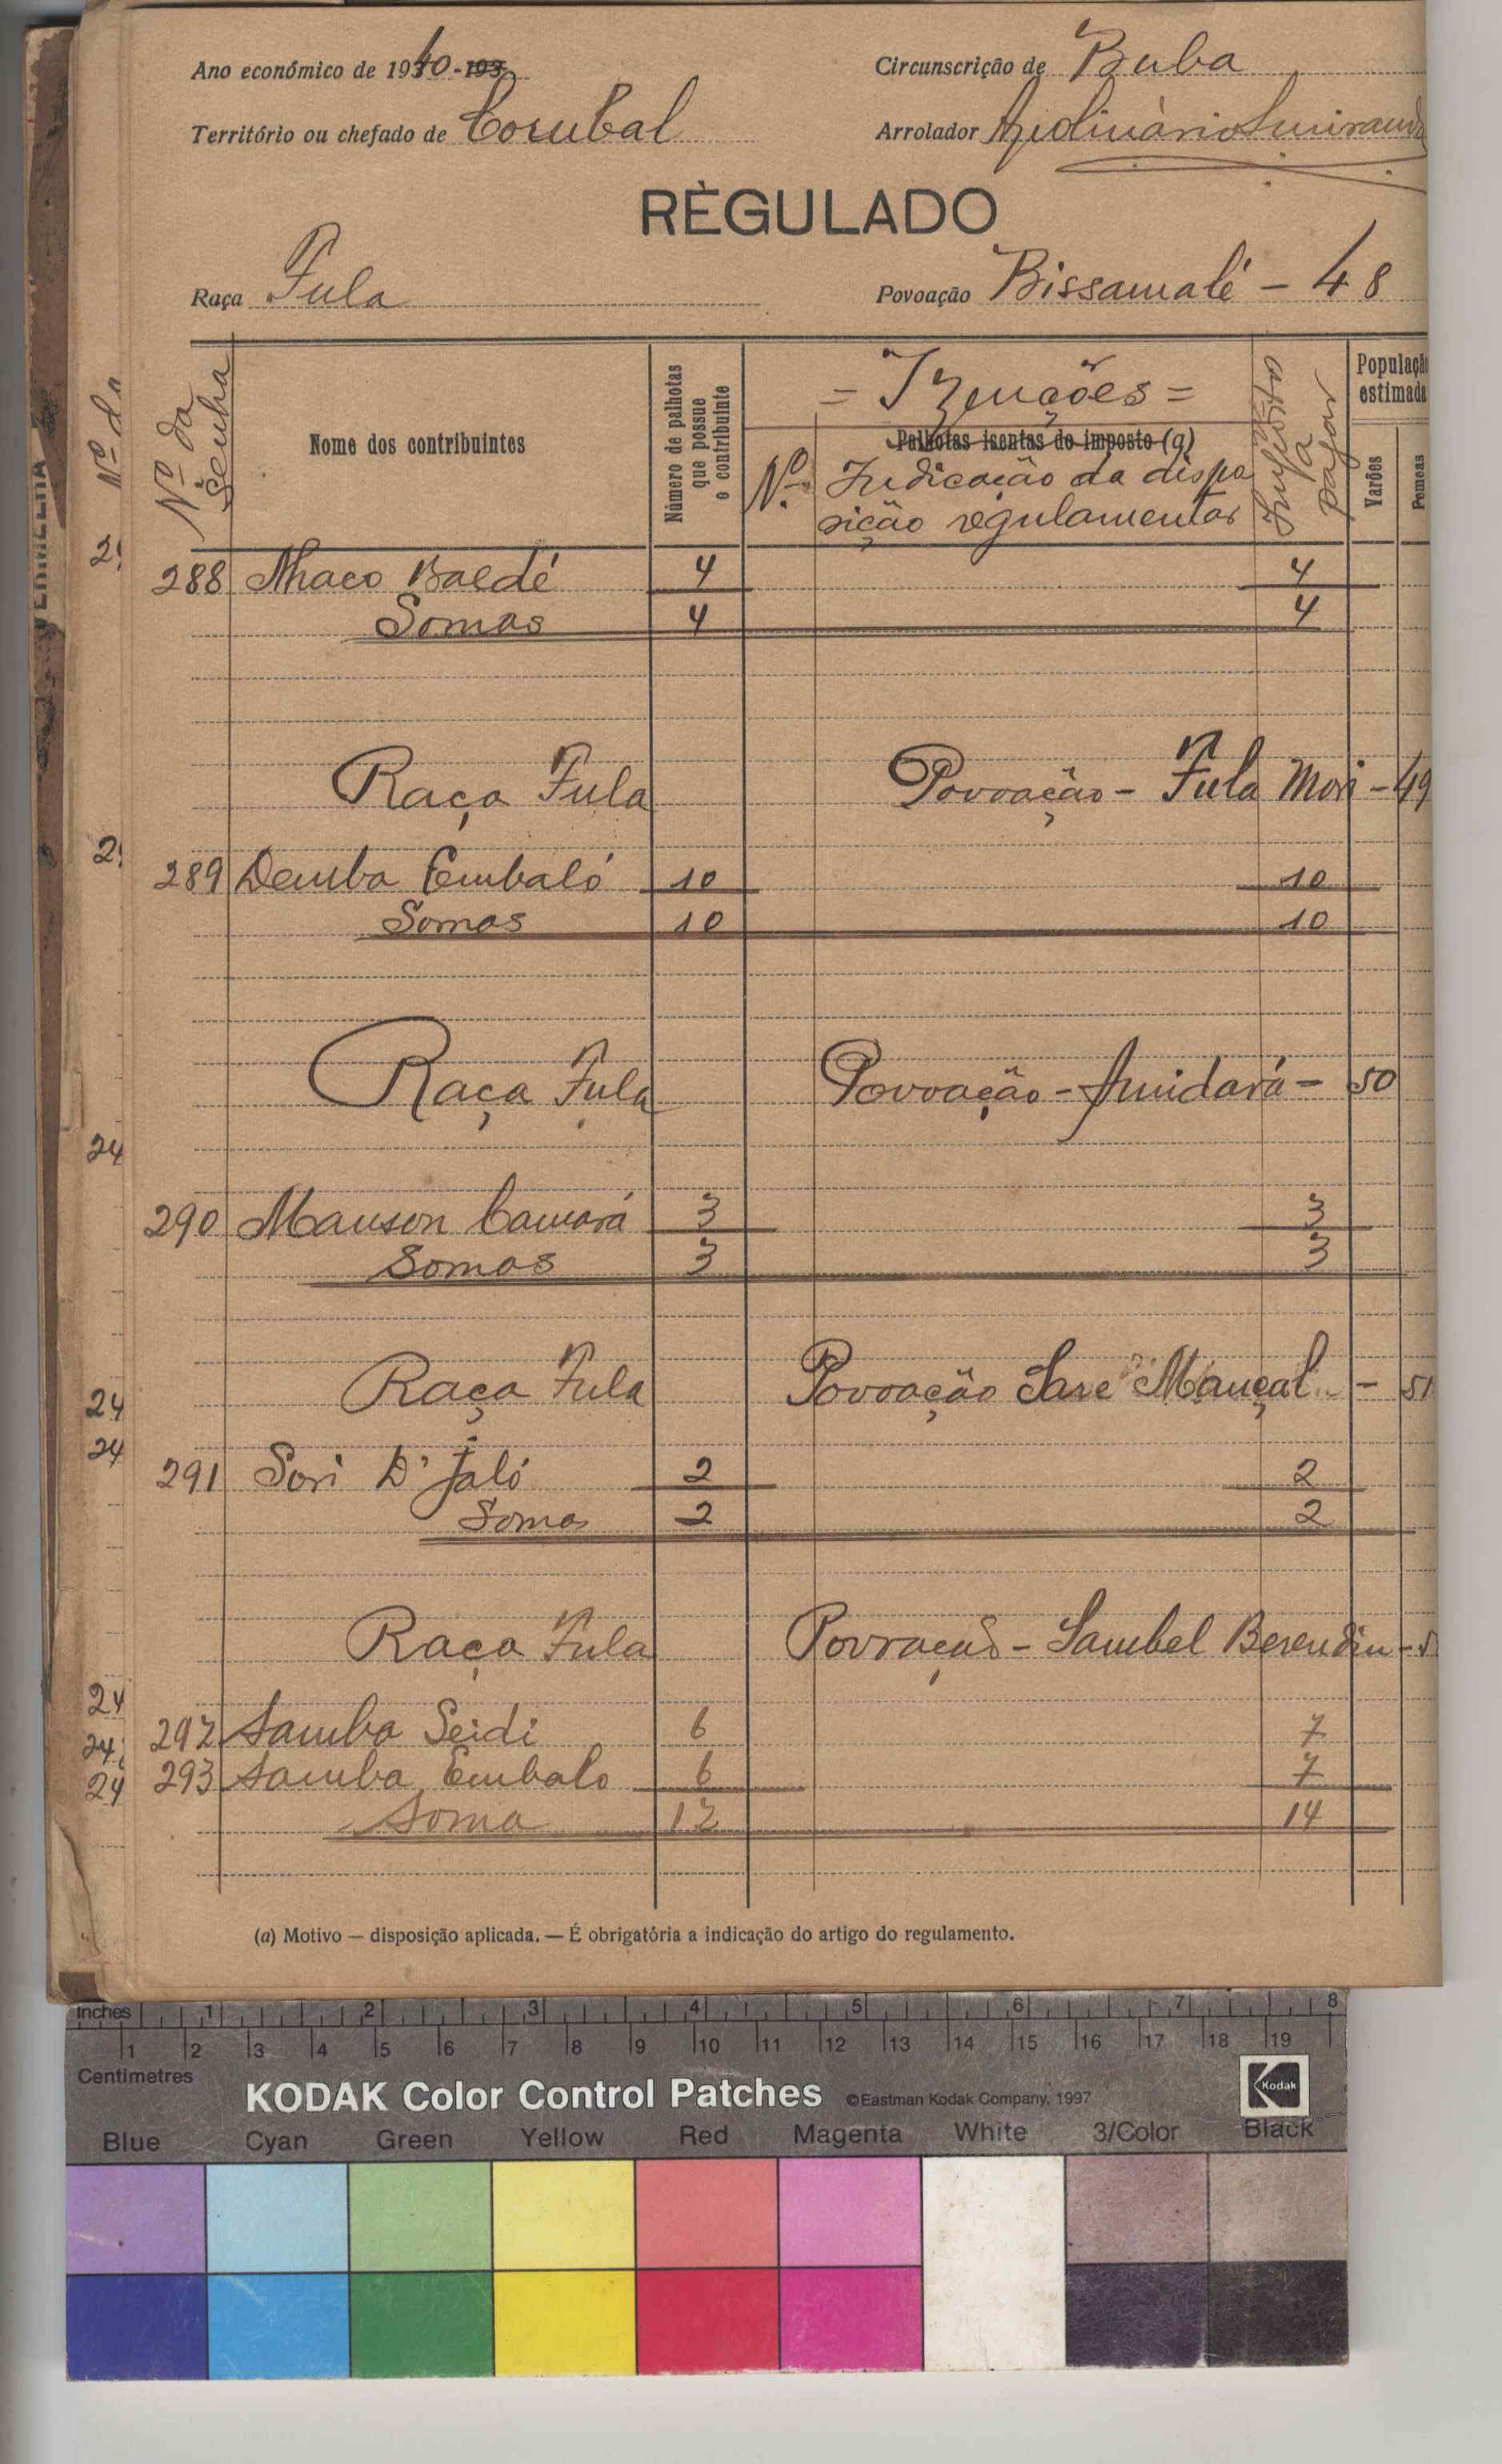 Ano económico de 1940 - 193
Circunscrição de Buba
Território ou chefado de Corubal
Arrolador Apolinário
RÈGULADO
Raça Fula
Povoação Bissamalé - 48
Nº da Senha
Nome dos contribuintes
Número de palhotas que possue o contribuinte
= Izenções =
Palhotas isentas do imposto (a)
Nº
Indicação da dispo
sição regulamentar
Imposto a pagar
População estimada
Varões
Femeas
288 Baldé 4 4
Somas 4 4
Raça Fula Povoação - Fula Mori - 49
289 Demba Embaló 10 10
Somas 10 10
Raça Fula Povoação - Amidará - 50
290 Manson Camará 3 3
Somas 3 3
Raça Fula Povoação Sare Mançal - 51
291 Sori D'Jaló 2 2
Soma 2 2
Raça Fula Povoação - Sambel Berendin - 5
292 Samba Seidi 6 7
293 Samba Embalo 6 7
Soma 12 14
(a) Motivo — disposição aplicada. — É obrigatória a indicação do artigo do regulamento.
Nº d
2
2
24
24
24
24
24
24
Inches 1 2 3 4 5 6 7 8
1 2 3 4 5 6 7 8 9 10 11 12 13 14 15 16 17 18 19
Centimetres
KODAK Color Control Patches ©Eastman Kodak Company, 1997 Kodak
Blue Cyan Green Yellow Red Magenta White 3/Color Black